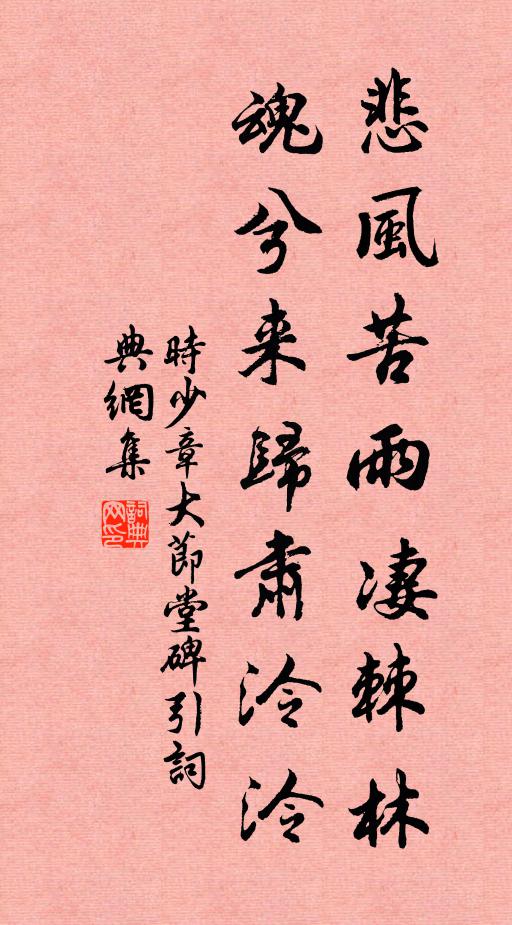 悲風苦雨凄棘林
魂兮来歸肅泠泠
時少章大節堂碑引詞
典網集
詞典网印